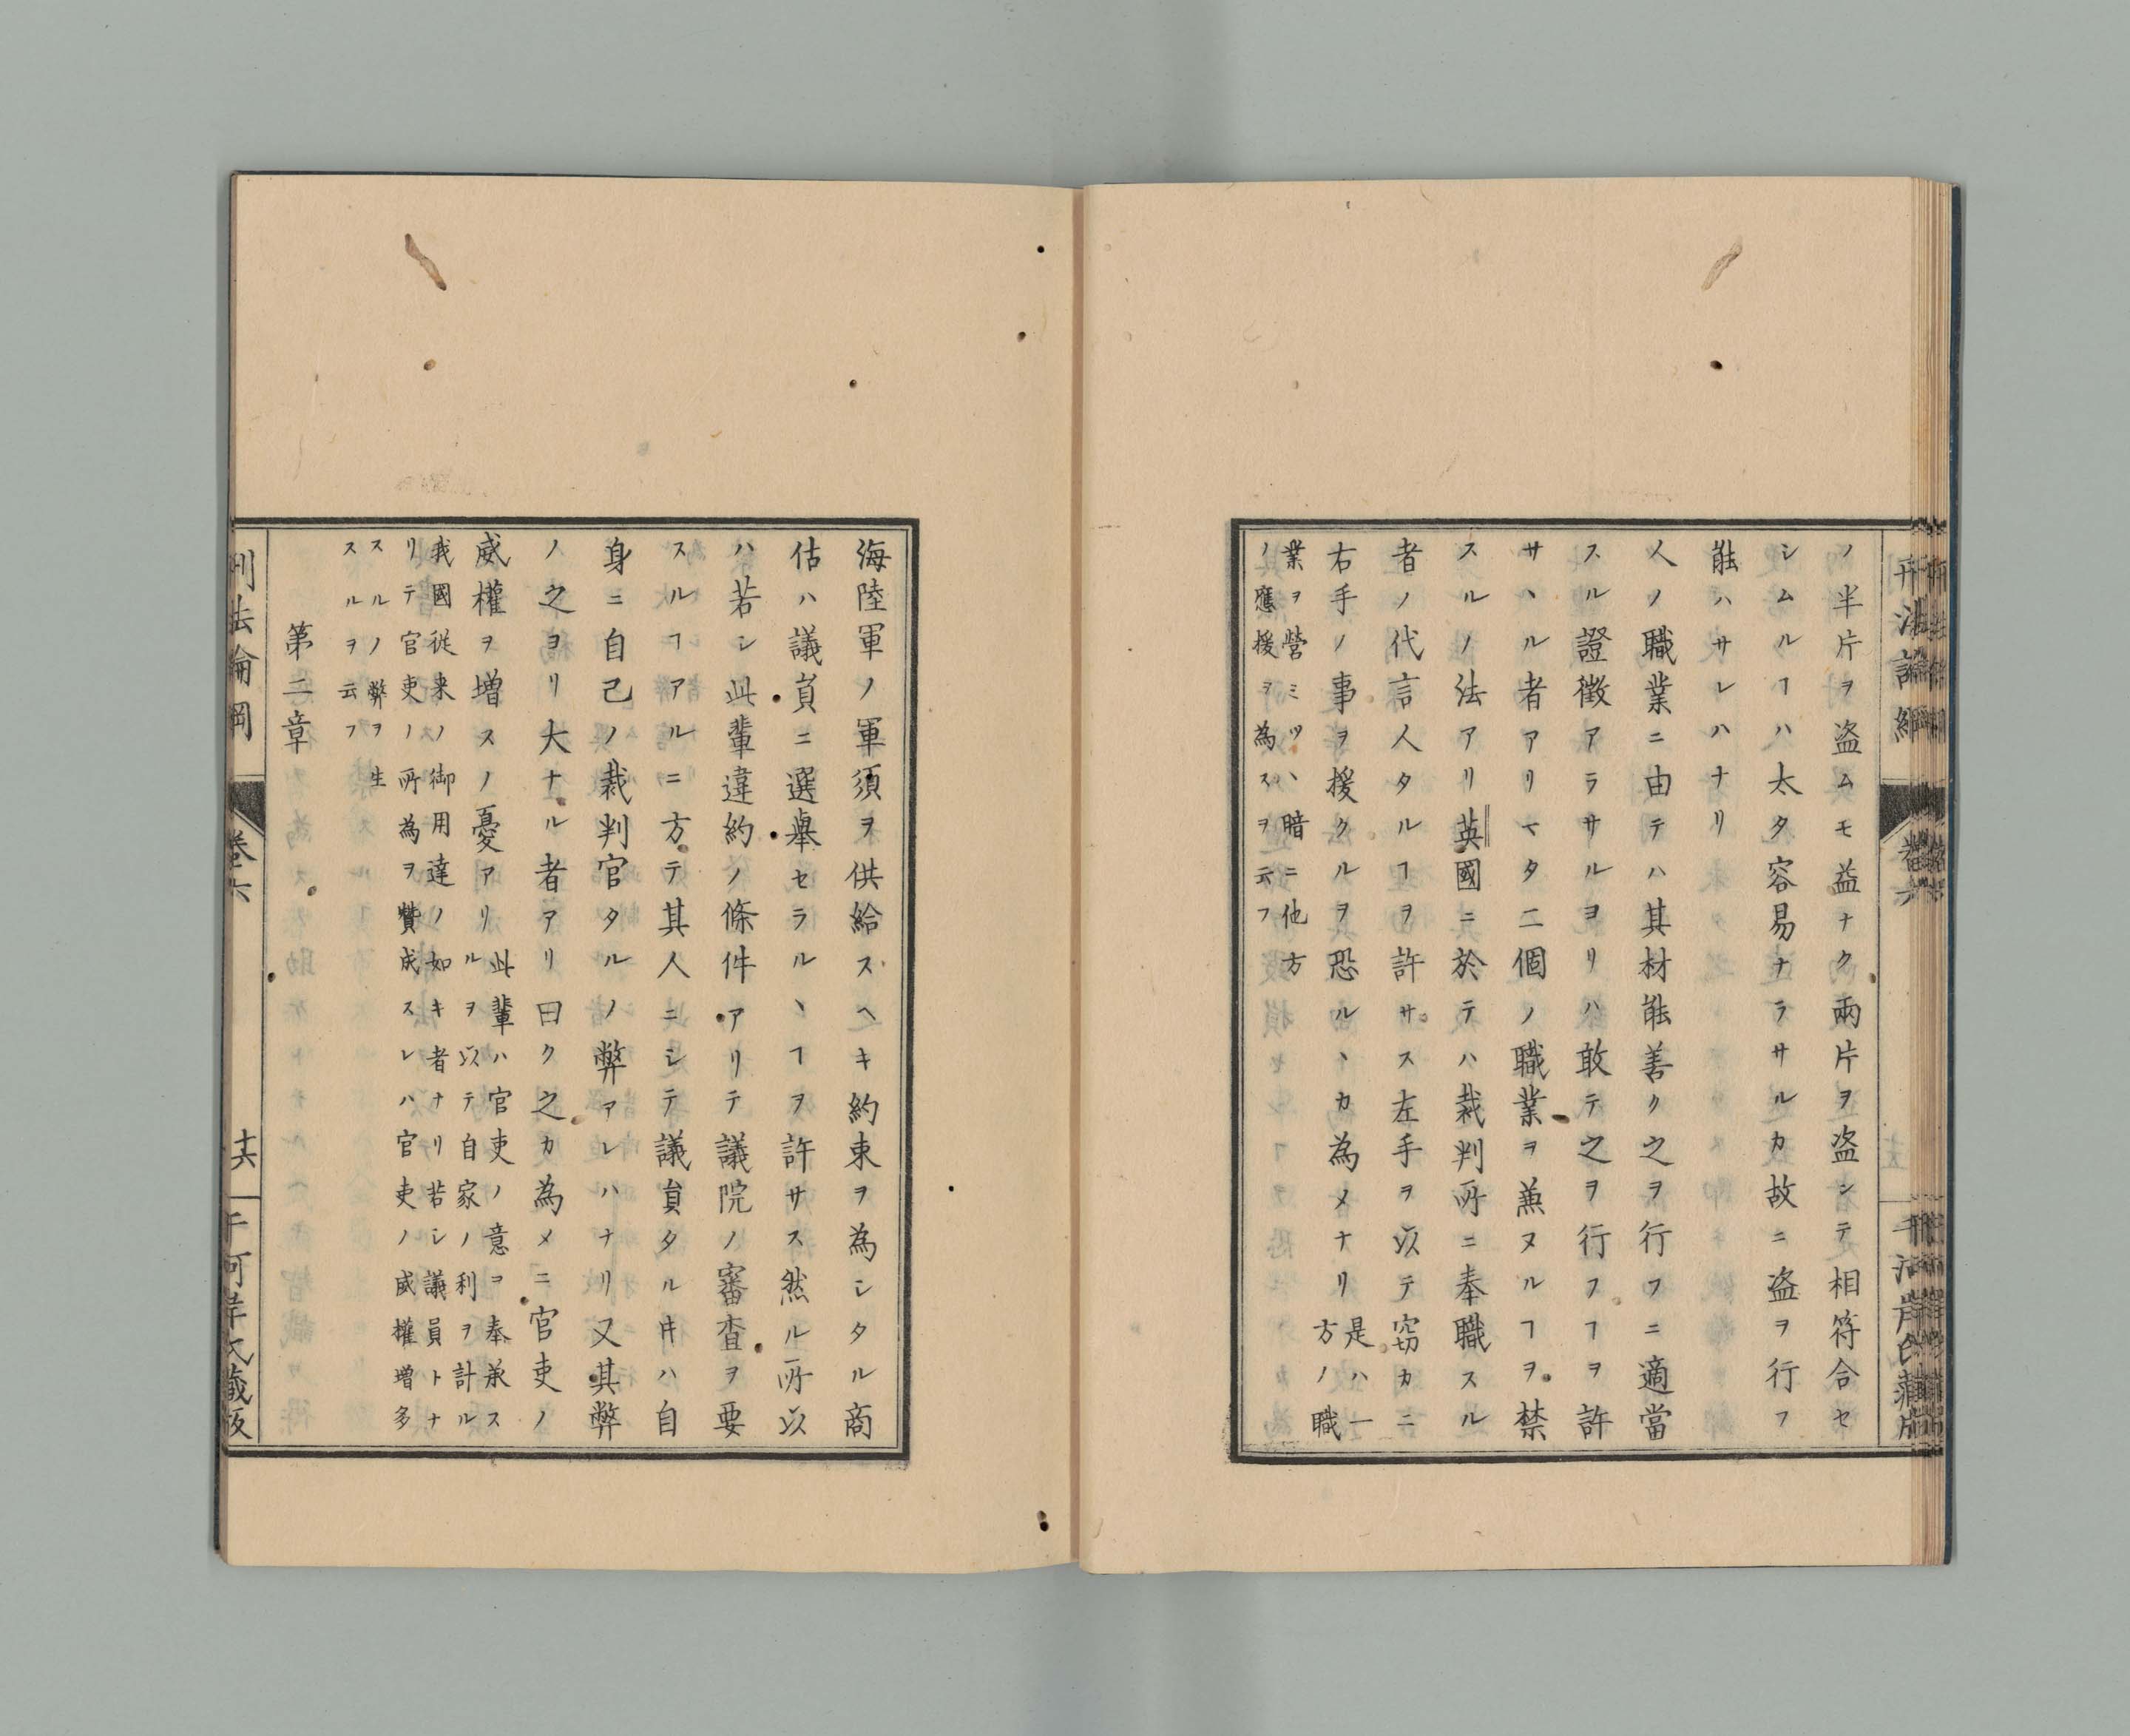 刑法論綱
卷六
ノ半片ヲ盗ムモ益ナク兩片ヲ盗シテ相符合セ
シムルヿハ太タ容易ナラサルカ故ニ盗ヲ行フ
能ハサレハナリ
人ノ職業ニ由テハ其材能善ク之ヲ行フニ適當
スル證徴アラサルヨリハ敢テ之ヲ行フヿヲ許
サヽル者アリマタ二個ノ職業ヲ兼ヌルヿヲ禁
スルノ法アリ英國ニ於テハ裁判所ニ奉職スル
者ノ代言人タルヿヲ許サス左手ヲ以テ窃カニ
右手ノ事ヲ援クルヲ恐ルヽカ為メナリ
是ハ一
方ノ職
業ヲ營ミツヽ暗ニ他方
ノ應援ヲ為スヲ云フ
海陸軍ノ軍須ヲ供給スヘキ約束ヲ為シタル商
估ハ議員ニ選擧セラルヽヿヲ許サス然ル所以
ハ若シ此輩違約ノ條件アリテ議院ノ審査ヲ要
スルヿアルニ方テ其人ニシテ議員タル𪜈ハ自
身ニ自己ノ裁判官タルノ弊アレハナリ又其弊
ノ之ヨリ大ナル者アリ曰ク之カ為メニ官吏ノ
威權ヲ増スノ憂アリ
此輩ハ官吏ノ意ヲ奉承ス
ルヲ以テ自家ノ利ヲ計ル
我國従来ノ御用達ノ如キ者ナリ若シ議員トナ
リテ官吏ノ所為ヲ賛成スレハ官吏ノ威權増多
スルノ弊ヲ生
スルヲ云フ
第二章
刑法論綱
卷六
十六
千河岸氏蔵版